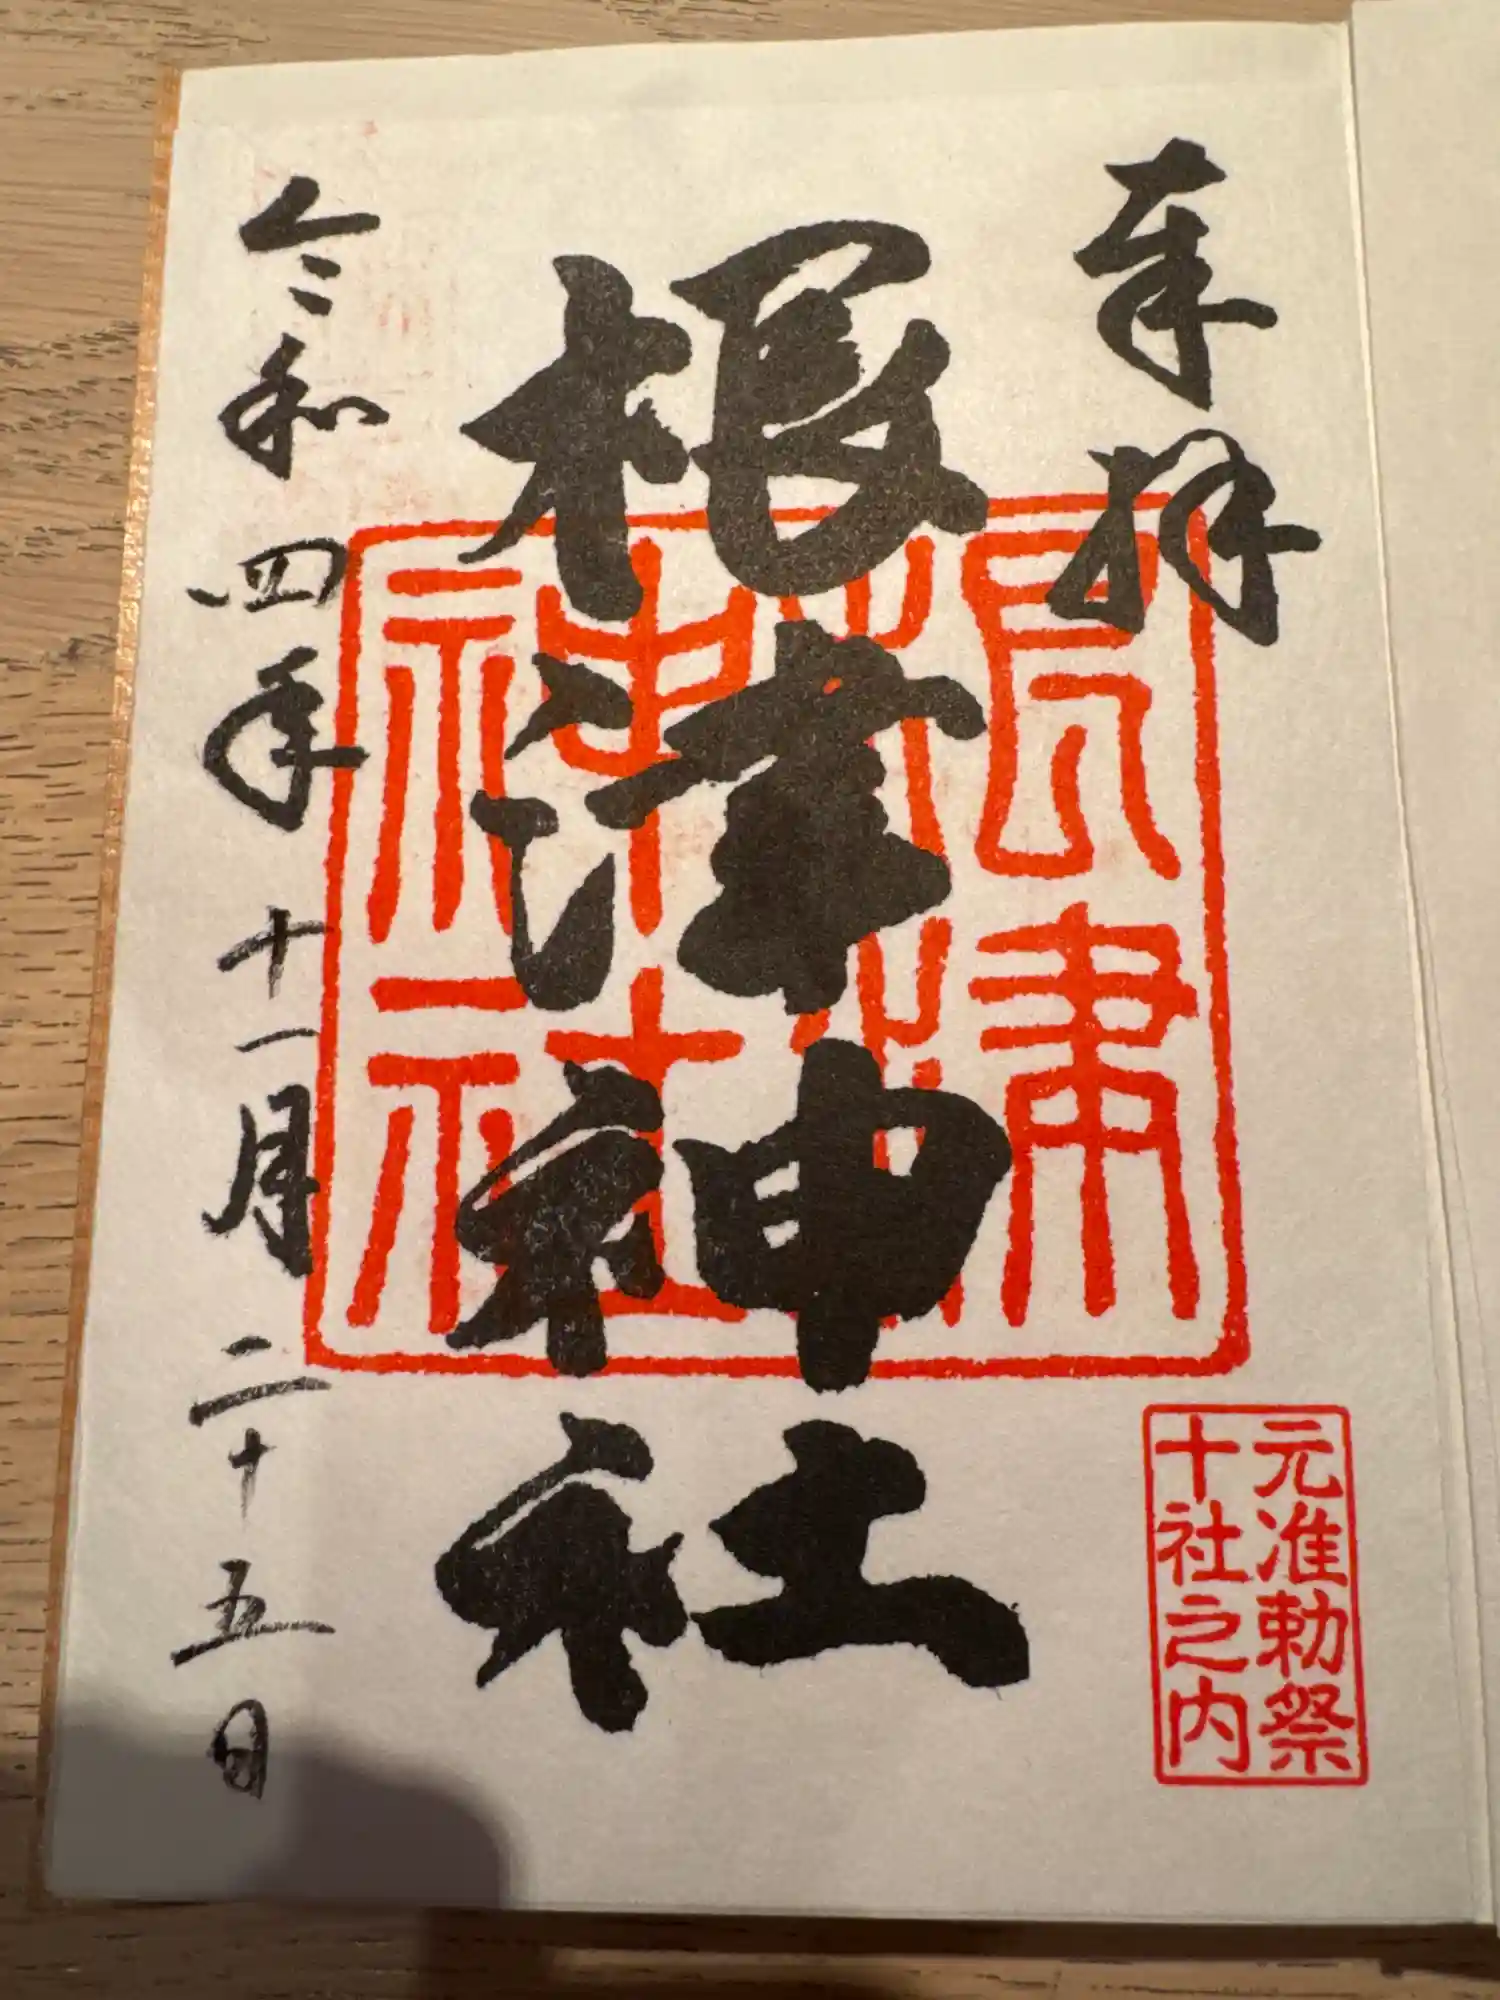 奉拝
元准勅祭
十社之内
根津神社
根津
神社
令和四年十一月二十五日